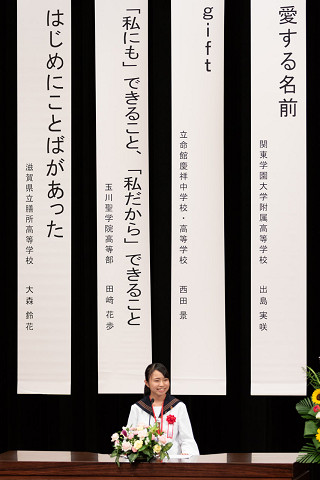 愛する名前
関東学園大学附属高等学校　出島 実咲
gift
立命館慶祥中学校・高等学校　西田 景
「私にも」できること、「私だから」できること
玉川聖学院高等部　田﨑 花歩
はじめにことばがあった
滋賀県立膳所高等学校　大森 鈴花